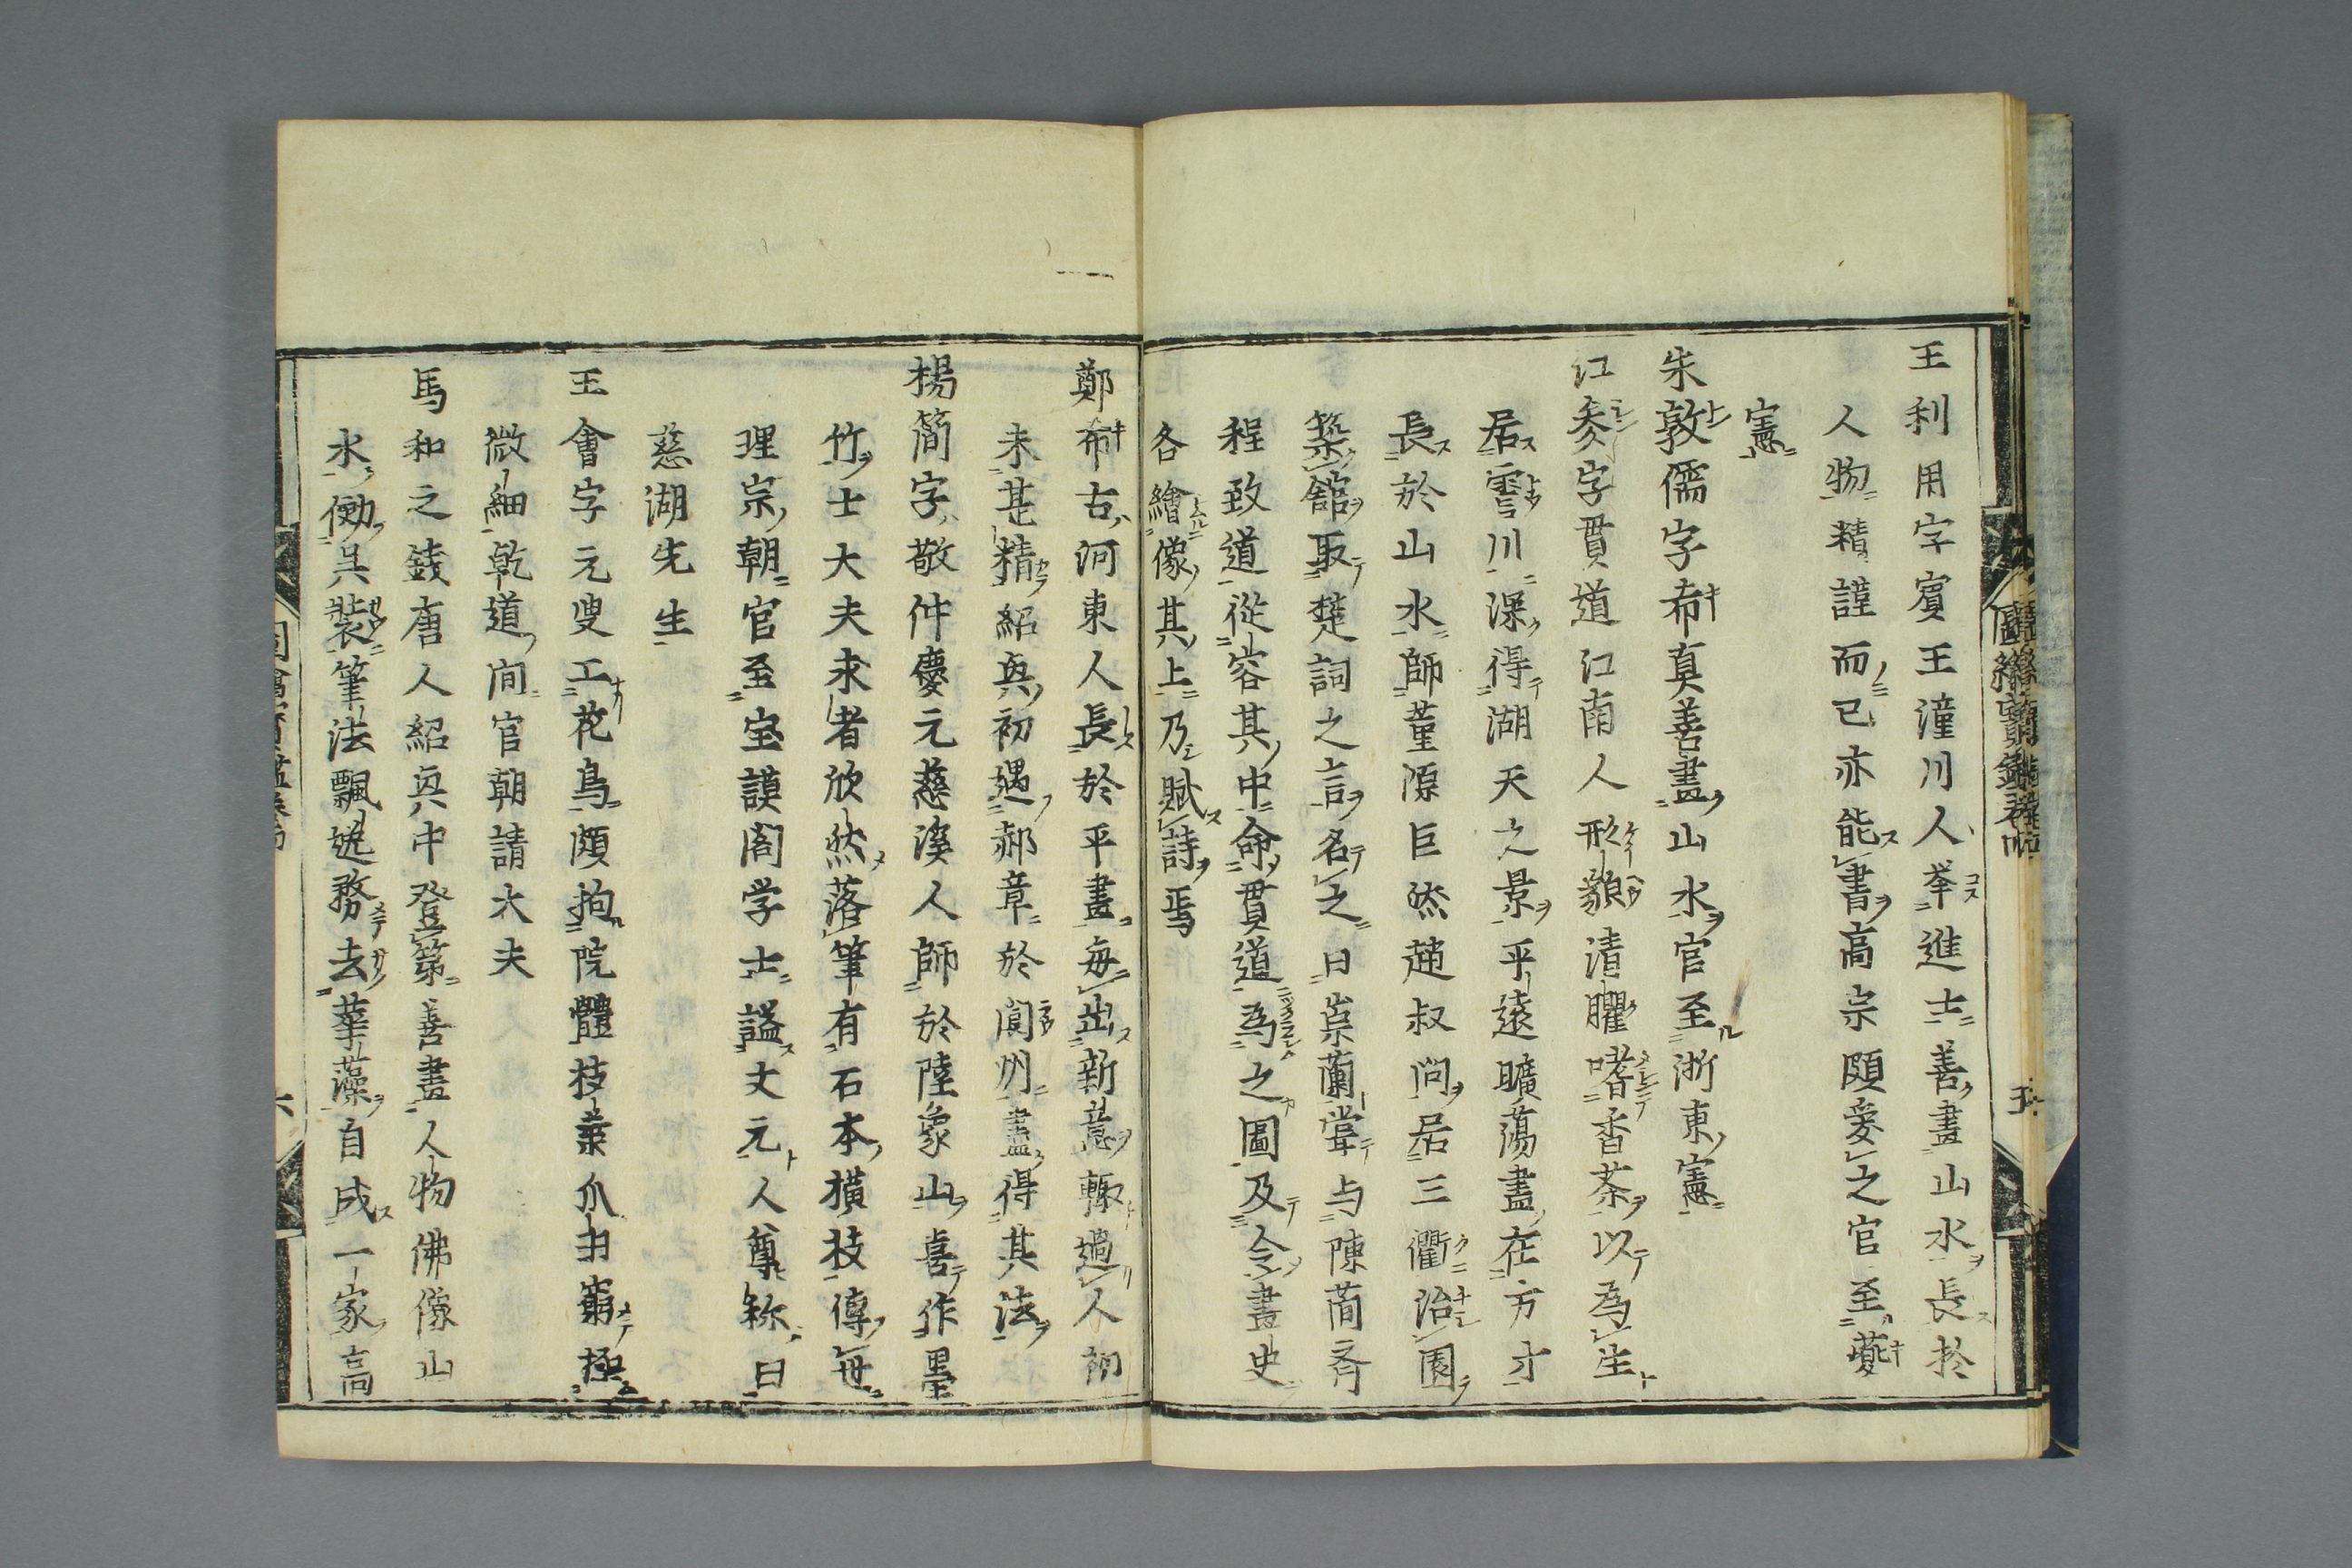 王利用字賓王潼川人挙進士善畫山水長於
人物精謹而已亦能書高宗頗愛之官至夔
憲
朱敦儒字希真善畫山水官至浙東憲
江参字貫道江南人形貌清臞嗜香茶以為生
居霅川深得湖天之景平遠曠蕩盡在方寸
長於山水師董源巨然趙叔問居三衢治園
築館取楚詞之言名之曰崇蘭甞与陳萠斉
程致道従容其中命貫道為之圖及令畫史
各繪像其上乃賦詩焉
鄭希古河東人長於平畫毎出新意輙過人初
未甚精紹興初遇郝章於閬州盡得其法
楊簡字敬仲慶元慈溪人師於陸象山喜作墨
竹士大夫求者欣然落筆有石本横枝傳毎
理宗朝官至宝謨閣学士謚文元人尊称曰
慈湖先生
王會字元叟工花鳥頗拘院體枝葉爪羽窮極
微細乾道間官朝請大夫
馬和之銭唐人紹興中登第善畫人物佛像山
水倣呉装筆法飄逸務去華藻自成一家高